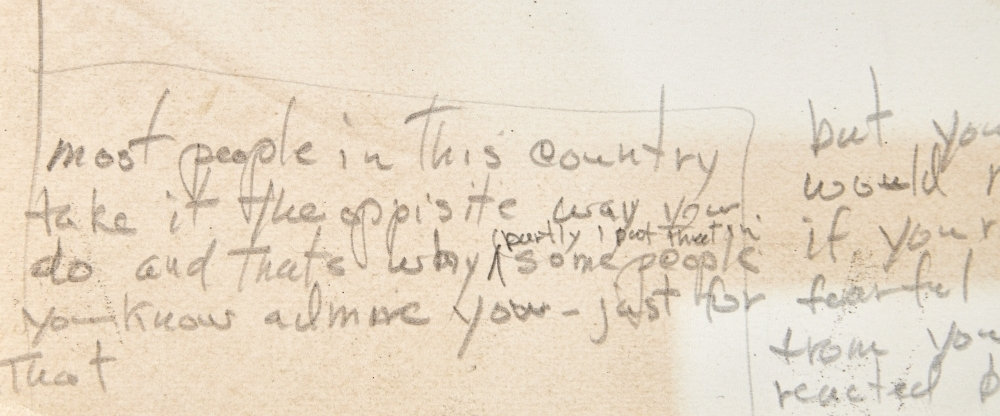 most people in this country
take it the oppisite way your
(partly i put that in
do and thats why some people
you know admire your - just for
That
but you
would
if your
fearful
from you
reacted